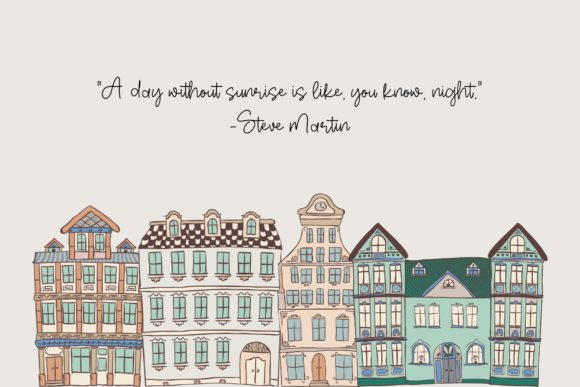 "A day without sunrise is like, you know, night."
-Steve Martin